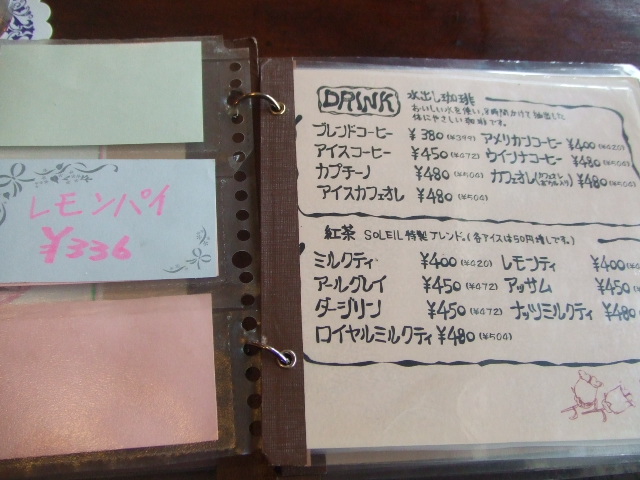 レモンパイ
¥336
DRINK 水出し珈琲
おいしい水を使い、8時間かけて抽出した
体にやさしい珈琲です。
ブレンドコーヒー ¥380(¥399) アメリカンコーヒー ¥400(¥420)
アイスコーヒー ¥450(¥472) ウインナコーヒー ¥480(¥504)
カプチーノ ¥480(¥504) カフェオレ ¥480(¥504)
アイスカフェオレ ¥480(¥504)
紅茶 SOLEIL特製ブレンド。(各アイスは50円増しです。)
ミルクティ ¥400(¥420) レモンティ ¥400
アールグレイ ¥450(¥472) アッサム ¥450
ダージリン ¥450(¥472) ナッツミルクティ ¥480
ロイヤルミルクティ ¥480(¥504)